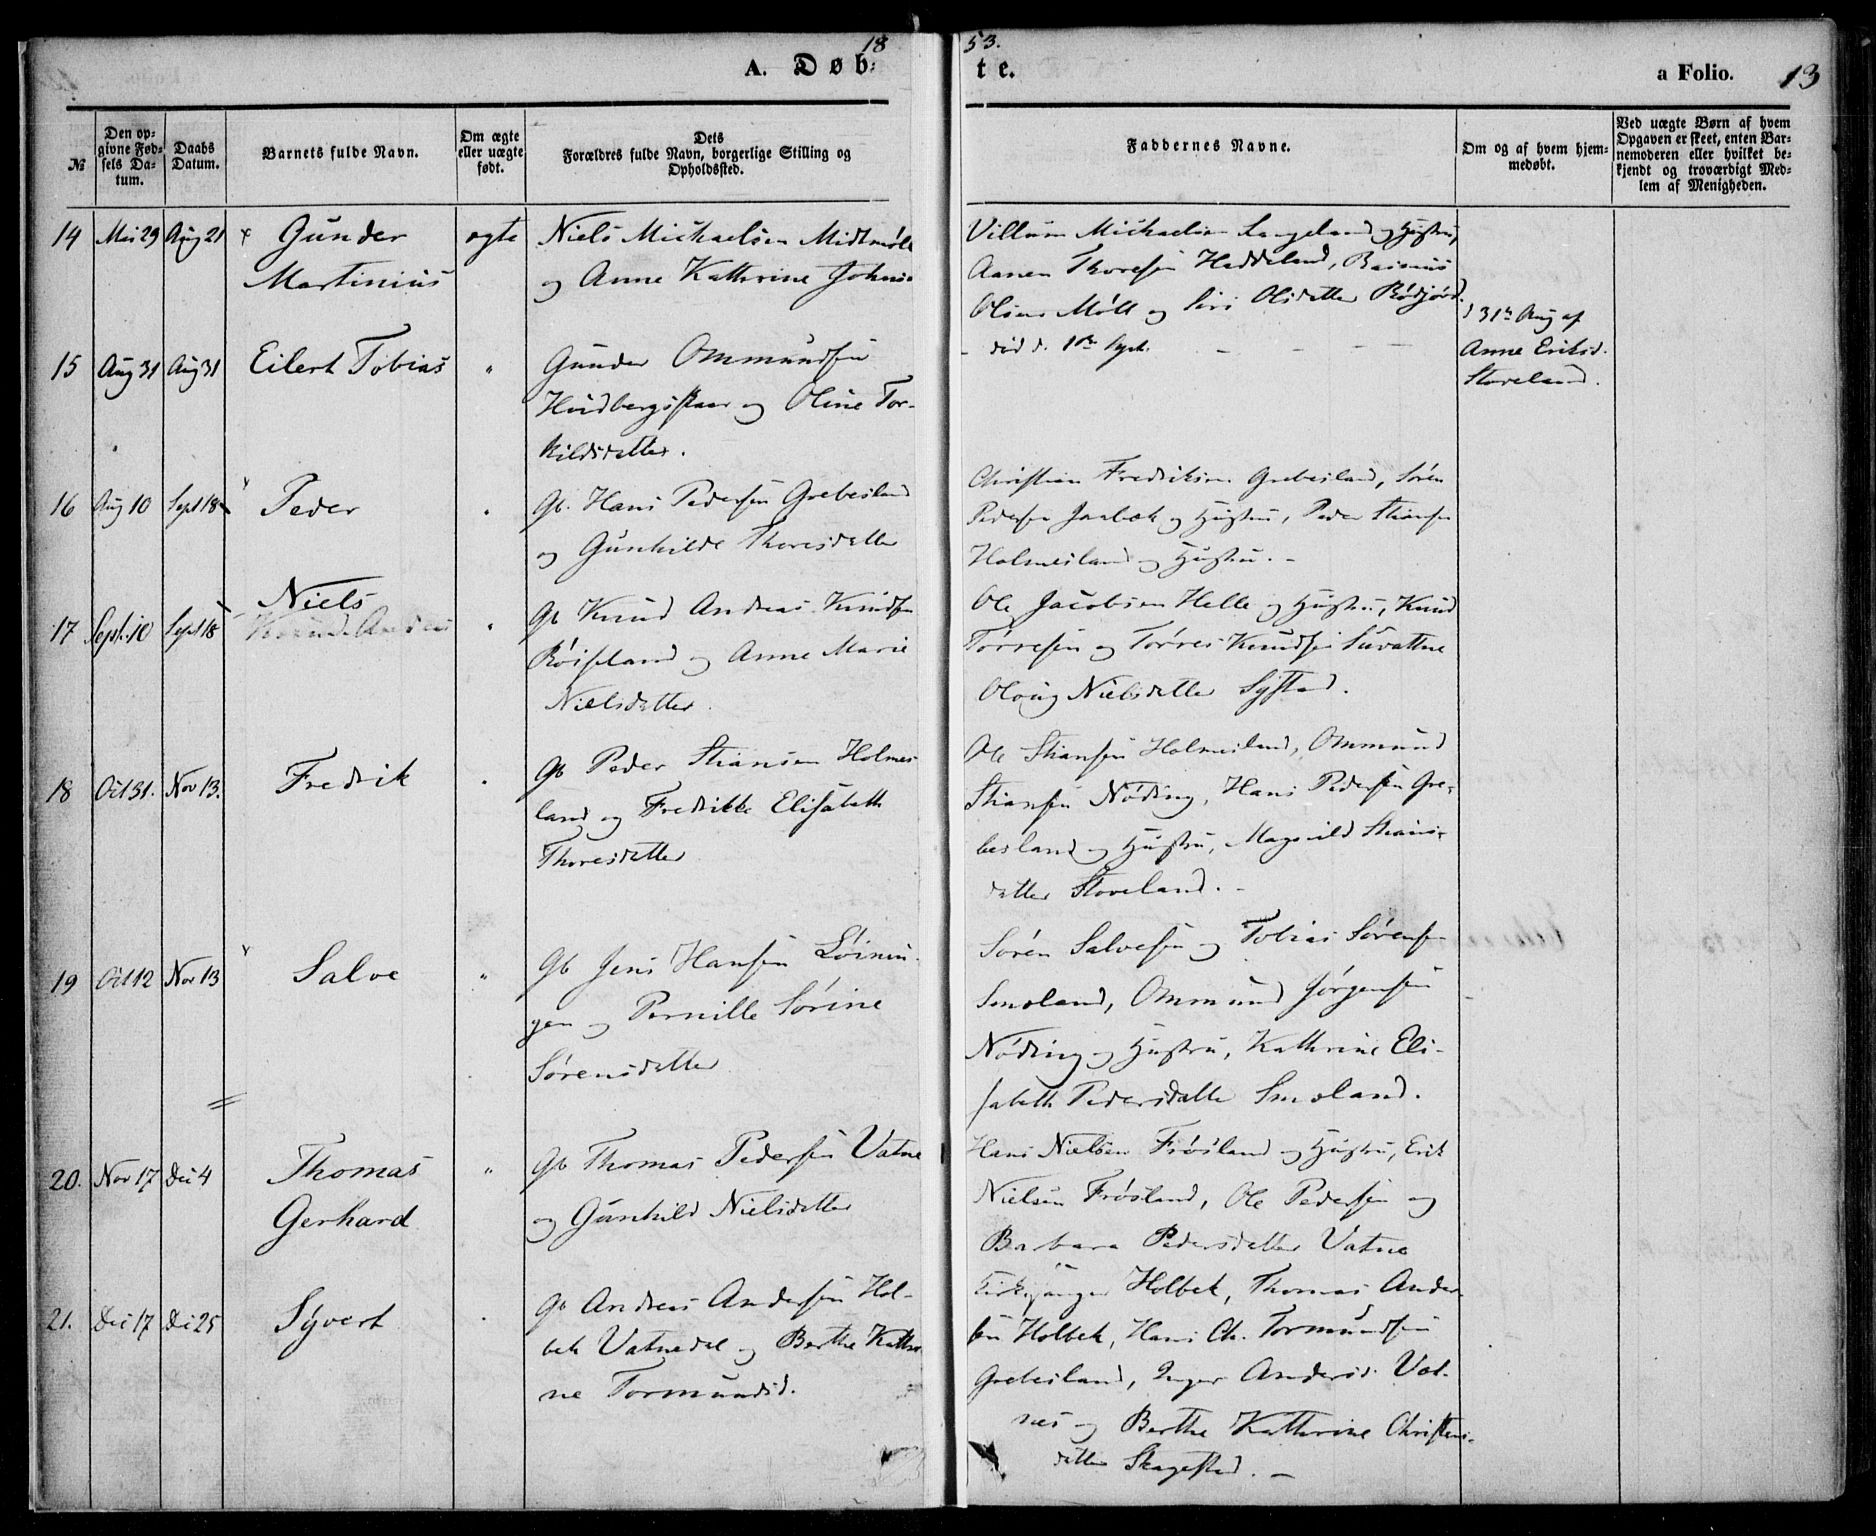 18 53.
A. Døb: te. a Folio. 13
№
Den op=
givne Fød=
sels Da=
tum.
Daabs
Datum.
Barnets fulde Navn.
Om ægte
eller uægte
født.
Dets
Forældres fulde Navn, borgerlige Stilling og
Opholdssted.
Faddernes Navne.
Om og af hvem hjem=
medøbt.
Ved uægte Børn af hvem
Opgaven er skeet, enten Bar=
nemoderen eller hvilket be=
kjendt og troværdigt Med=
lem af Menigheden.
14 Mai 29 Aug 21 Gunder
Martinius
ægte
Niels Michaelsen Midtmøll
og Anne Kathrine Johns
Villum Michaelsen Langeland og Hustru,
Aanen Thoresen Heddeland, Rasmus
Olsen Møll og Siri Olsdatter Rødjørd.
15 Aug 31 Aug 31 Eilert Tobias "
Gunder Ommundsen
Hindbergskaar og Oline Tor-
kildsdatter.
- død d. 1ste Sept. - - - -
d 31te Aug af
Anne Eriksd.
Stoveland.
16 Aug 10 Sept 18 Peder "
Gb. Hans Pedersen Grebesland
og Gunhilde Thoresdatter
Christian Fredriksen Grebesland, Søren
Pedersen Jaabæk og Hustru, Peder Stiansen
Holmesland og Hustru. -
17 Sept. 10 Sept 18 Niels
Knud Andreas "
Gb Knud Andreas Knudsen
Røiseland og Anne Marie
Nielsdatter.
Ole Jacobsen Helle og Hustru, Knud
Tørresen og Tørres Knudsen
Nielsdatter
18 Oct 31. Nov 13. Fredrik "
Gb Peder Stiansen Holmes
land og Fredrikke Elisabeth
Thoresdatter
Ole Stiansen Holmesland, Ommund
Stiansen Nøding, Hans Pedersen Gre-
besland og Hustru, Magnild Stians-
datter Stoveland. -
19 Oct 12 Nov 13 Salve "
Gb Jens Hansen Løinin-
gen og Pernille Sørine
Sørensdatter
Søren Salvesen og Tobias Sørensen
Smoland, Ommund Jørgensen
Nøding og Hustru, Kathrine Eli-
sabeth Pedersdatter Smoland.
20. Nov 17 Dec 4 Thomas
Gerhard "
Gb Thomas Pedersen Vatne
og Gunhild Nielsdatter
Hans Nielsen Frøsland og Hustru, Erik
Nielsen Frøsland, Ole Pedersen og
Barbara Pedersdatter Vatne
21. Dec 17 Dec 25 Syvert "
Gb Andreas Andersen Hol-
bek Vatnedal og Berthe Kathri
ne Tormundsd.
Kirkesanger Holbek, Thomas Ander
sen Holbek, Hans Ch. Tormundsen
Grebesland, Inger Andersd. Vat-
nes og Berthe Kathrine Christens-
datter Skagestad. -